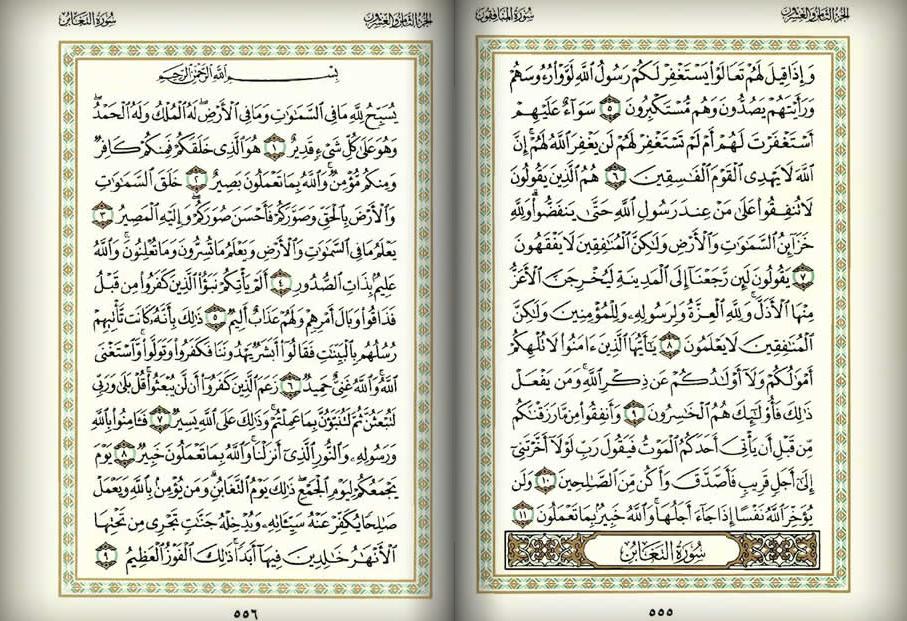 سورة المنافقون
الجزء الثامن والعشرون
وَإِذَا قِيلَ لَهُمْ تَعَالَوْا يَسْتَغْفِرْ لَكُمْ رَسُولُ اللَّهِ لَوَّوْا رُءُوسَهُمْ
وَرَأَيْتَهُمْ يَصُدُّونَ وَهُم مُّسْتَكْبِرُونَ ٥ سَوَاءٌ عَلَيْهِمْ
أَسْتَغْفَرْتَ لَهُمْ أَمْ لَمْ تَسْتَغْفِرْ لَهُمْ لَن يَغْفِرَ اللَّهُ لَهُمْ إِنَّ
اللَّهَ لَا يَهْدِي الْقَوْمَ الْفَاسِقِينَ ٦ هُمُ الَّذِينَ يَقُولُونَ
لَا تُنفِقُوا عَلَىٰ مَنْ عِندَ رَسُولِ اللَّهِ حَتَّىٰ يَنفَضُّوا وَلِلَّهِ
خَزَائِنُ السَّمَاوَاتِ وَالْأَرْضِ وَلَٰكِنَّ الْمُنَافِقِينَ لَا يَفْقَهُونَ
٧ يَقُولُونَ لَئِن رَّجَعْنَا إِلَى الْمَدِينَةِ لَيُخْرِجَنَّ الْأَعَزُّ
مِنْهَا الْأَذَلَّ وَلِلَّهِ الْعِزَّةُ وَلِرَسُولِهِ وَلِلْمُؤْمِنِينَ وَلَٰكِنَّ
الْمُنَافِقِينَ لَا يَعْلَمُونَ ٨ يَا أَيُّهَا الَّذِينَ آمَنُوا لَا تُلْهِكُمْ
أَمْوَالُكُمْ وَلَا أَوْلَادُكُمْ عَن ذِكْرِ اللَّهِ وَمَن يَفْعَلْ
ذَٰلِكَ فَأُولَٰئِكَ هُمُ الْخَاسِرُونَ ٩ وَأَنفِقُوا مِن مَّا رَزَقْنَاكُم
مِّن قَبْلِ أَن يَأْتِيَ أَحَدَكُمُ الْمَوْتُ فَيَقُولَ رَبِّ لَوْلَا أَخَّرْتَنِي
إِلَىٰ أَجَلٍ قَرِيبٍ فَأَصَّدَّقَ وَأَكُن مِّنَ الصَّالِحِينَ ١٠ وَلَن
يُؤَخِّرَ اللَّهُ نَفْسًا إِذَا جَاءَ أَجَلُهَا وَاللَّهُ خَبِيرٌ بِمَا تَعْمَلُونَ ١١
سُورَةُ التَّغَابُنِ
٥٥٥
سورة التغابن
الجزء الثامن والعشرون
بِسْمِ اللَّهِ الرَّحْمَٰنِ الرَّحِيمِ
يُسَبِّحُ لِلَّهِ مَا فِي السَّمَاوَاتِ وَمَا فِي الْأَرْضِ لَهُ الْمُلْكُ وَلَهُ الْحَمْدُ
وَهُوَ عَلَىٰ كُلِّ شَيْءٍ قَدِيرٌ ١ هُوَ الَّذِي خَلَقَكُمْ فَمِنكُمْ كَافِرٌ
وَمِنكُم مُّؤْمِنٌ وَاللَّهُ بِمَا تَعْمَلُونَ بَصِيرٌ ٢ خَلَقَ السَّمَاوَاتِ
وَالْأَرْضَ بِالْحَقِّ وَصَوَّرَكُمْ فَأَحْسَنَ صُوَرَكُمْ وَإِلَيْهِ الْمَصِيرُ ٣
يَعْلَمُ مَا فِي السَّمَاوَاتِ وَالْأَرْضِ وَيَعْلَمُ مَا تُسِرُّونَ وَمَا تُعْلِنُونَ وَاللَّهُ
عَلِيمٌ بِذَاتِ الصُّدُورِ ٤ أَلَمْ يَأْتِكُمْ نَبَأُ الَّذِينَ كَفَرُوا مِن قَبْلُ
فَذَاقُوا وَبَالَ أَمْرِهِمْ وَلَهُمْ عَذَابٌ أَلِيمٌ ٥ ذَٰلِكَ بِأَنَّهُ كَانَت تَّأْتِيهِمْ
رُسُلُهُم بِالْبَيِّنَاتِ فَقَالُوا أَبَشَرٌ يَهْدُونَنَا فَكَفَرُوا وَتَوَلَّوا وَّاسْتَغْنَى
اللَّهُ وَاللَّهُ غَنِيٌّ حَمِيدٌ ٦ زَعَمَ الَّذِينَ كَفَرُوا أَن لَّن يُبْعَثُوا قُلْ بَلَىٰ وَرَبِّي
لَتُبْعَثُنَّ ثُمَّ لَتُنَبَّؤُنَّ بِمَا عَمِلْتُمْ وَذَٰلِكَ عَلَى اللَّهِ يَسِيرٌ ٧ فَآمِنُوا بِاللَّهِ
وَرَسُولِهِ وَالنُّورِ الَّذِي أَنزَلْنَا وَاللَّهُ بِمَا تَعْمَلُونَ خَبِيرٌ ٨ يَوْمَ
يَجْمَعُكُمْ لِيَوْمِ الْجَمْعِ ذَٰلِكَ يَوْمُ التَّغَابُنِ وَمَن يُؤْمِن بِاللَّهِ وَيَعْمَلْ
صَالِحًا يُكَفِّرْ عَنْهُ سَيِّئَاتِهِ وَيُدْخِلْهُ جَنَّاتٍ تَجْرِي مِن تَحْتِهَا
الْأَنْهَارُ خَالِدِينَ فِيهَا أَبَدًا ذَٰلِكَ الْفَوْزُ الْعَظِيمُ ٩
٥٥٦